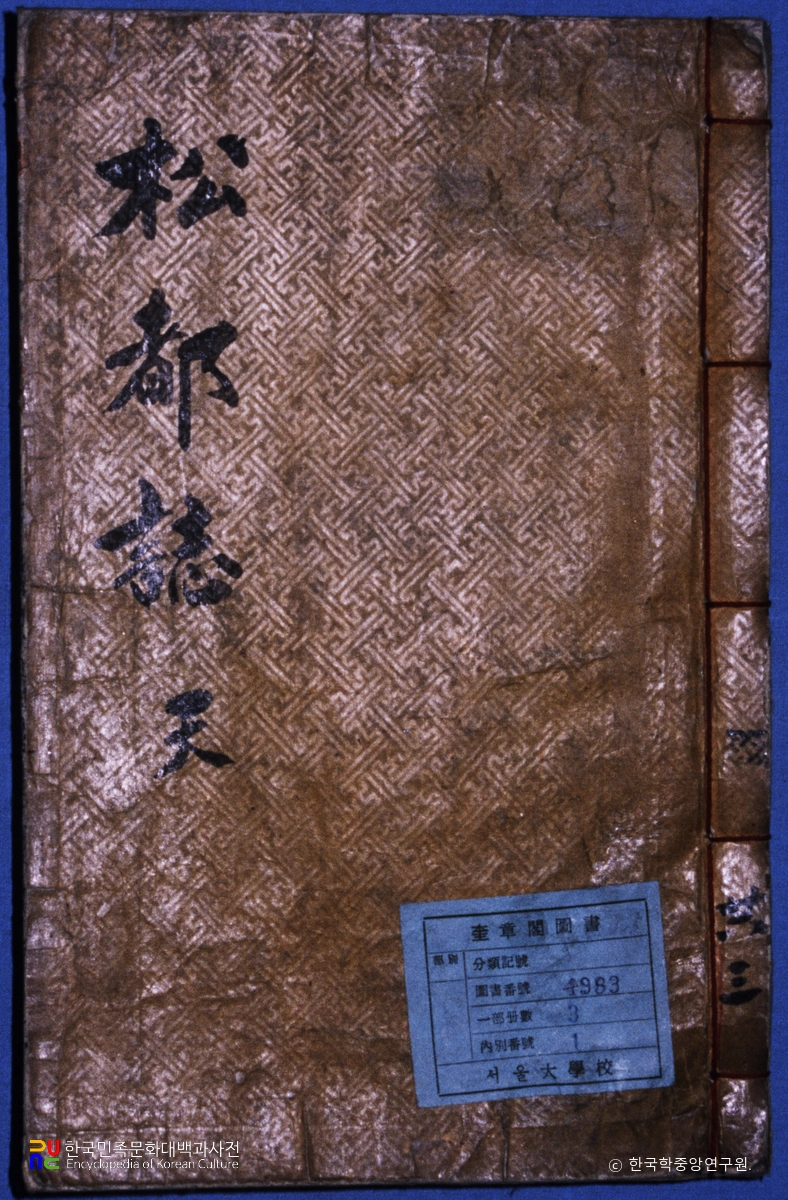 松都誌 天
共三
奎章閣圖書
部別
分類記號
圖書番號 4983
一部册數 3
內別番號 1
서울大學校
한국민족문화대백과사전
Encyclopedia of Korean Culture
© 한국학중앙연구원